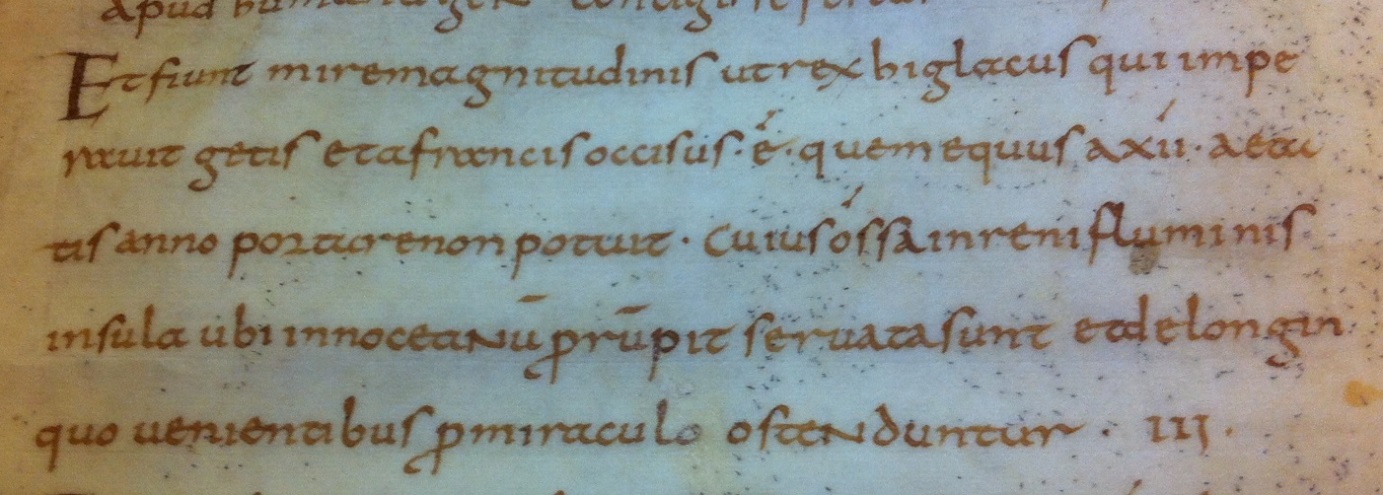 apud humanum genus
Et fiunt mire magnitudinis ut rex higlacus qui impe
rauit getis et a francis occisus · ē · quem equus a xii · aeta
tis anno portare non potuit · Cuius ossa in reni fluminis
insula ubi in noceanū prūpit seruata sunt et de longin
quo uenientibus p miraculo ostenduntur · III ·